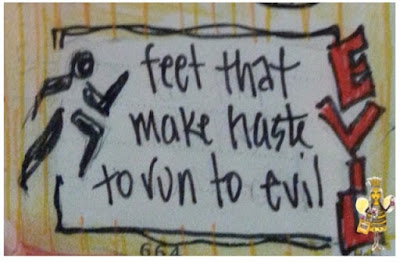 feet that
make haste
to run to evil
EVIL
664